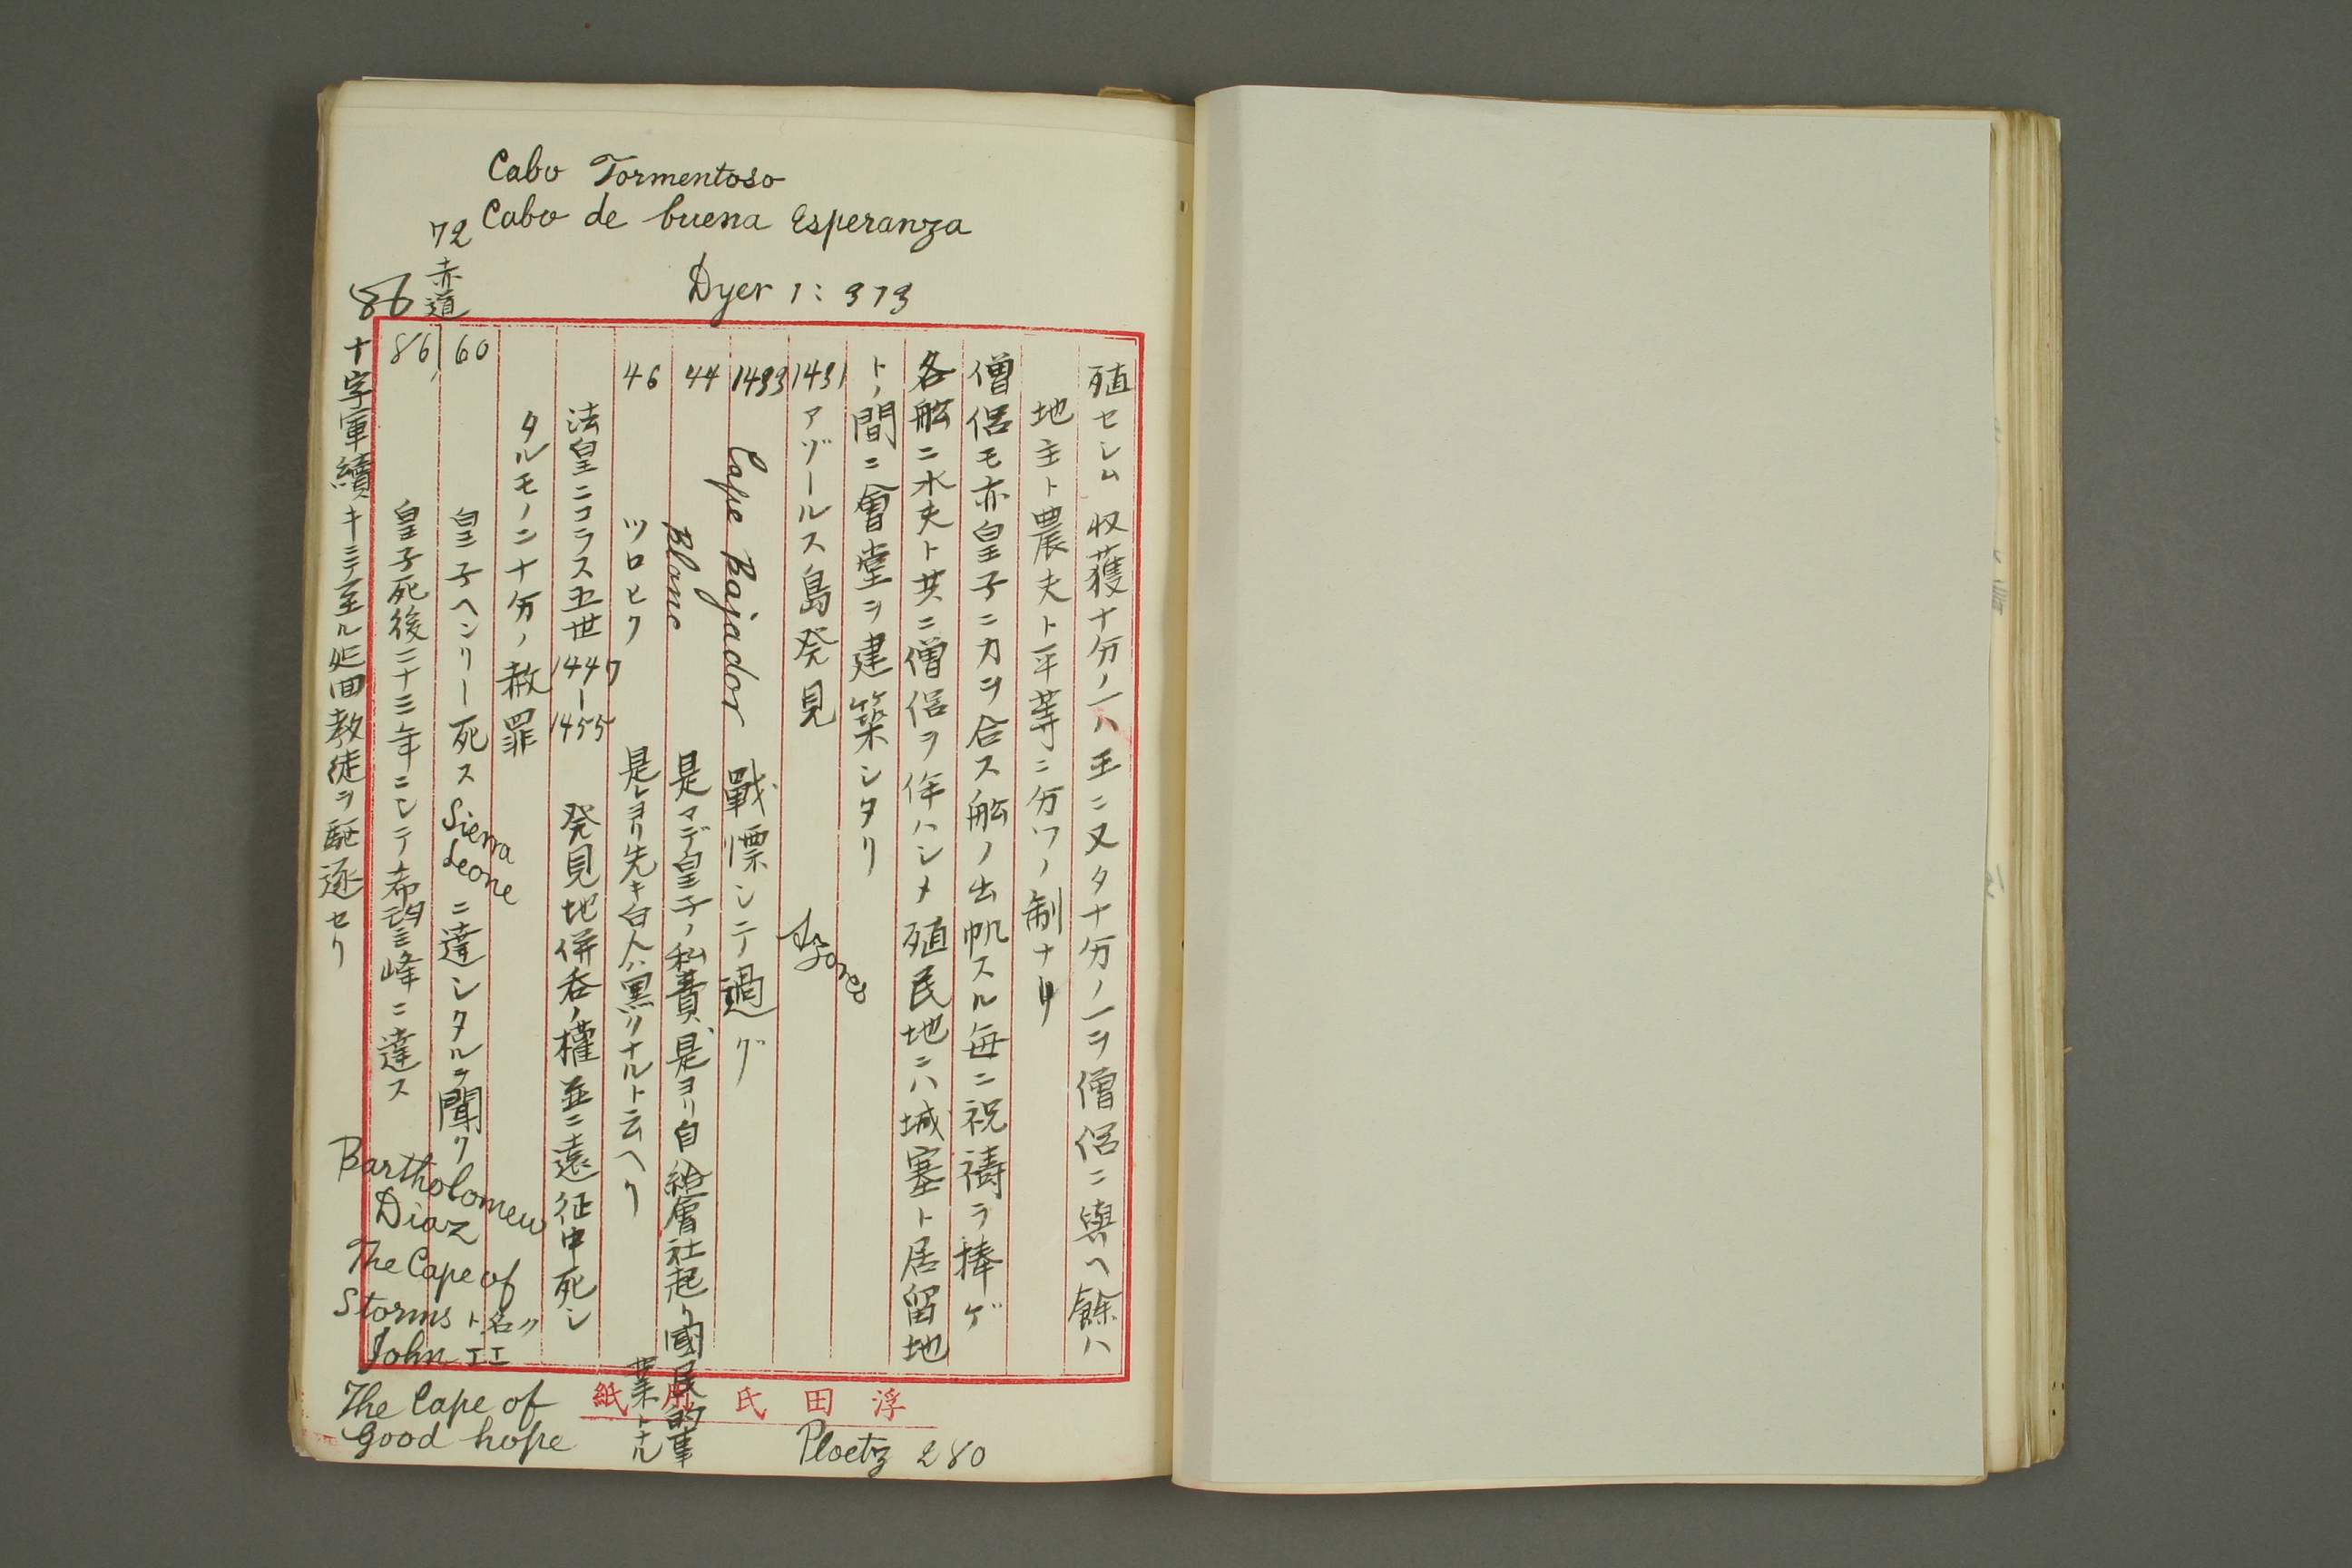 Cabo Tormentoso
Cabo de buena Esperanza
Dyer 1: 373
72 赤道
86
殖セシム 収獲十分ノ一ハ王ニ又タ十分ノ一ヲ僧侶ニ與ヘ餘ハ
地主ト農夫ト平等ニ分ツノ制ナリ
僧侶モ亦皇子ニ力ヲ合ス舩ノ出帆スル毎ニ祝禱ヲ捧ゲ
各舩ニ水夫ト共ニ僧侶ヲ伴ハシメ殖民地ニハ城塞ト居留地
トノ間ニ會堂ヲ建築シタリ
1431 アゾールス島発見 Azores
1433 Cape Bajador 戰慓シテ過グ
44 Blanc 是マデ皇子ノ私費、是ヨリ自ハ組會社起リ國民的事
業トナル
46 ツロヒク 是レヨリ先キ白人ハ黒クナルト云ヘリ
法皇ニコラス五世 1447-1455 発見地併呑ノ權並ニ遠征中死シ
タルモノニ十分ノ赦罪
60 皇子ヘンリー死ス Sierra Leone ニ達シタルヲ聞ク
86, 皇子死後二十三年ニシテ希望峰ニ達ス
十字軍續キニテ至ル処回教徒ヲ駈逐セリ
Bartholomew
Diaz
The Cape of
Storms ト名ク
John II
The Cape of
Good hope
浮田氏用紙
Ploetz 280